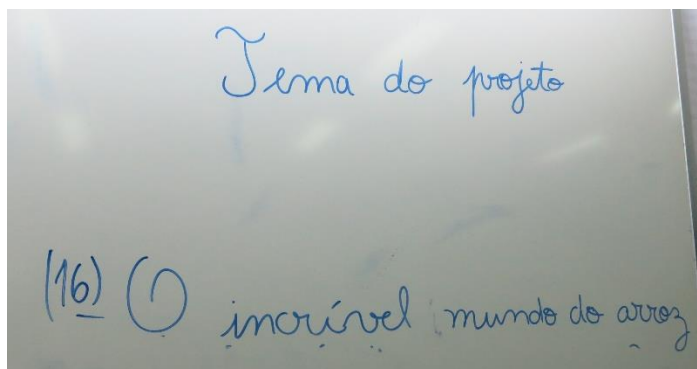 Tema do projeto
(16) O incrível mundo do arroz